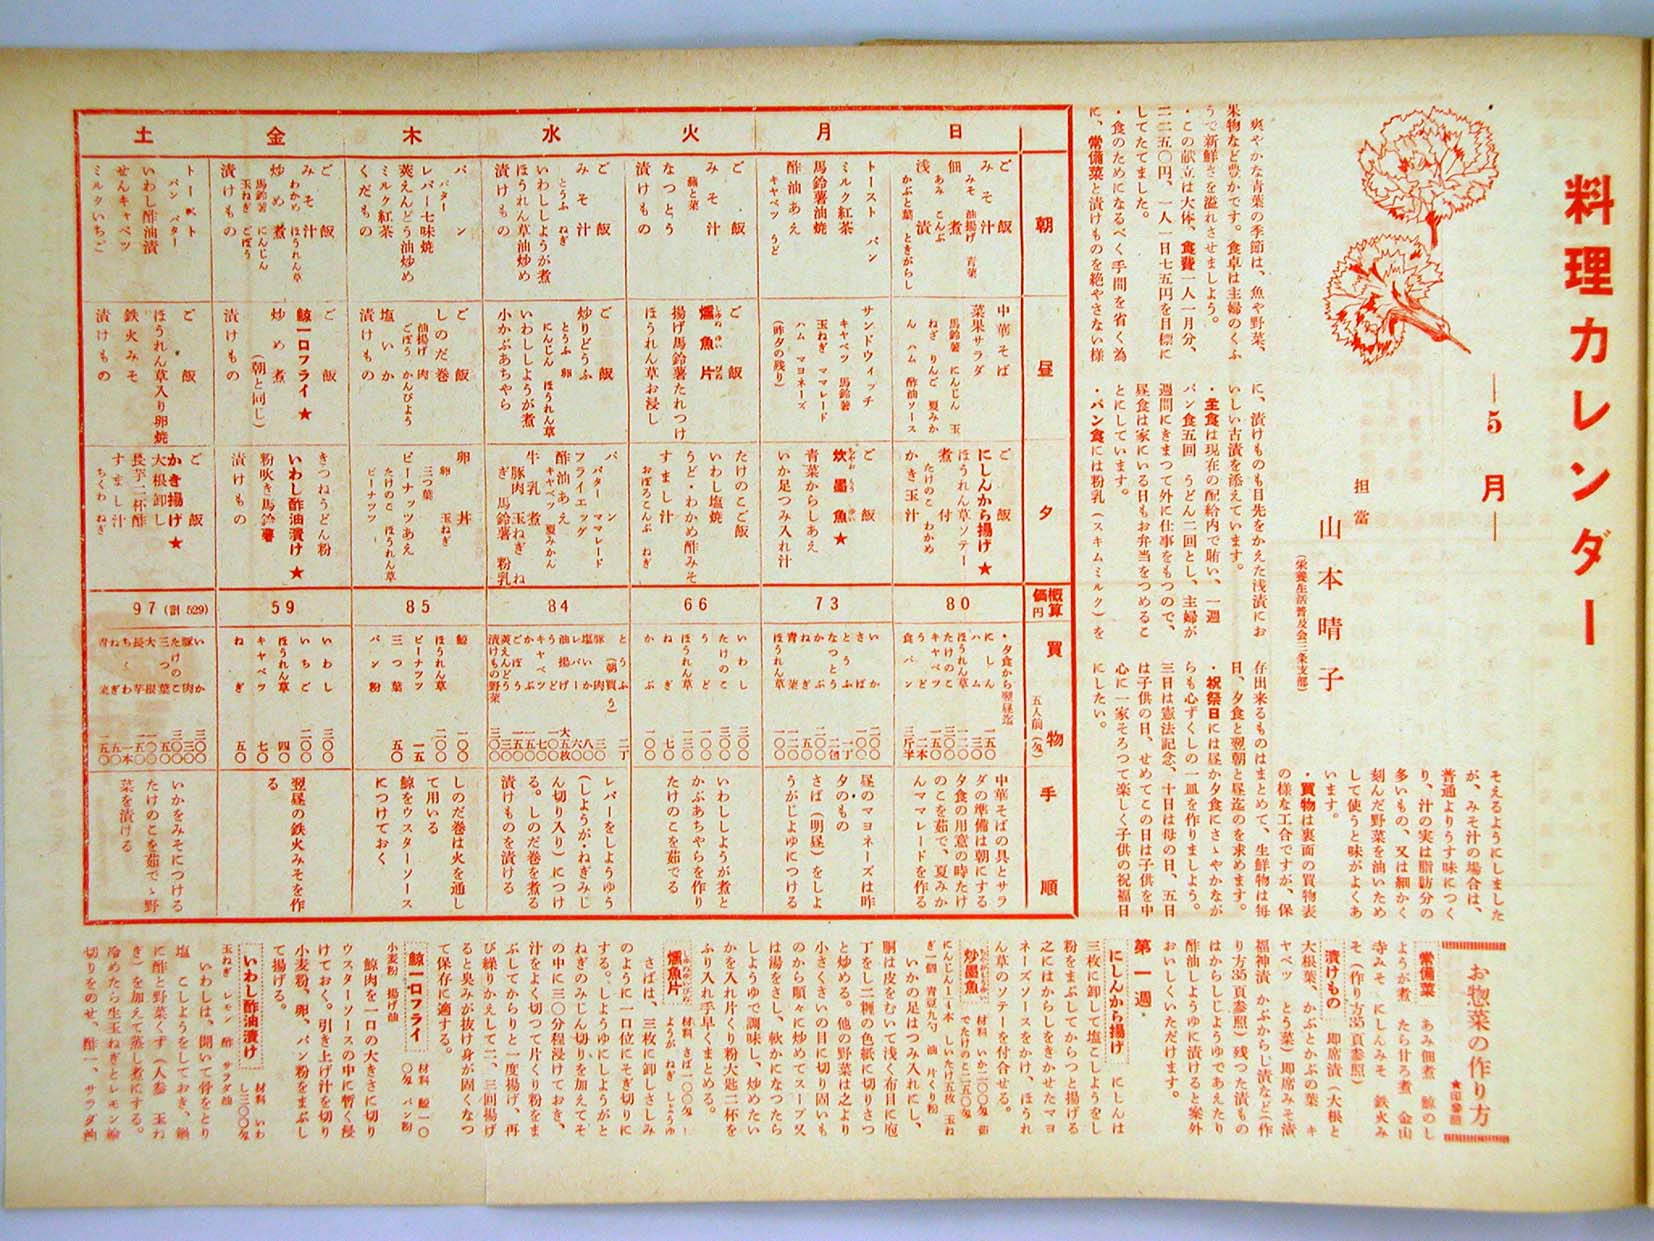 料理カレンダー
―5月―
担當
山本晴子
(栄養生活普及会三条支部)
爽やかな青葉の季節は、魚や野菜、
果物など豊かです。食卓は主婦のくふ
うで新鮮さを溢れさせましよう。
・この献立は大体、食費一人一月分、
二二五〇円、一人一日七五円を目標に
してたてました。
・食のためになるべく手間を省く為
に、常備菜と漬けものを絶やさない様
に、漬けものも目先をかえた浅漬にお
いしい古漬を添えています。
・主食は現在の配給内で賄い、一週
パン食五回 うどん二回とし、主婦が
週間にきまつて外に仕事をもつので、
昼食は家にいる日もお弁当をつめるこ
とにしています。
・パン食には粉乳(スキムミルク)を
そえるようにしました
が、みそ汁の場合は、
普通よりうす味につく
り、汁の実は脂肪分の
多いもの、又は細かく
刻んだ野菜を油いため
して使うと味がよくあ
います。
・買物は裏面の買物表
の様な工合ですが、保
存出来るものはまとめて、生鮮物は毎
日、夕食と翌朝と昼迄のを求めます。
・祝祭日には昼か夕食にさゝやかなが
らも心ずくしの一皿を作りましよう。
三日は憲法記念、十日は母の日、五日
は子供の日、せめてこの日は子供を中
心に一家そろつて楽しく子供の祝福日
にしたい。
朝
昼
夕
概算
価円
買物
五人前(匁)
手順
日
ご飯
みそ汁
みそ 油揚げ 青菜
佃煮
あみ こんぶ
浅漬
かぶと葉 ときがらし
中華そば
菜果サラダ
馬鈴薯 にんじん 玉
ねぎ りんご 夏みか
ん ハム 酢油ソース
ご飯
にしんから揚げ★
ほうれん草ソテー
煮付
たけのこ わかめ
かき玉汁
80
・夕食から翌昼迄
にしん 一五〇
ハム 三〇
ほうれん草 一〇〇
たけのこ 一五〇
キャベツ 三〇〇
うど 二本
食パン 三斤半
中華そばの具とサラ
ダの準備は朝にする
夕食の用意の時たけ
のこを茹で、夏みか
んママレードを作る
月
トースト パン
ミルク紅茶
馬鈴薯油焼
酢油あえ
キャベツ うど
サンドウィッチ
キャベツ 馬鈴薯
玉ねぎ ママレード
ハム マヨネーズ
(昨夕の残り)
ご飯
炊墨魚★
青菜からしあえ
いか足つみ入れ汁
73
いか 二〇〇
さば 一〇〇
とうふ 一丁
なつとう 二包
かぶ 二〇〇
ねぎ 五〇
青菜 一〇〇
ほうれん草 一五〇
昼のマヨネーズは昨
夕のもの
さば(明昼)をしよ
うがじよゆにつける
火
ご飯
みそ汁
蕪と菜
なつとう
漬けもの
ご飯
燻魚片
揚げ馬鈴薯たれつけ
ほうれん草お浸し
たけのこご飯
いわし塩焼
うど・わかめ酢みそ
すまし汁
おぼろこんぶ ねぎ
66
いわし 三〇〇
たけのこ 三〇〇
うど 一〇〇
ほうれん草 一三〇
ねぎ 七〇
かぶ 一〇〇
いわししようが煮と
かぶあちやらを作り
たけのこを茹でる
水
ご飯
みそ汁
とうふ ねぎ
いわししようが煮
ほうれん草油炒め
漬けもの
ご飯
炒りどうふ
とうふ 卵
にんじん ほうれん草
いわししようが煮
小かぶあちやら
パン
バター ママレード
フライエッグ
酢油あえ
キャベツ 夏みかん
牛乳煮
豚肉 玉ねぎ ね
ぎ 馬鈴薯 粉乳
84
とうふ 二丁
(朝買う)
豚肉 三〇
塩いか 八〇
レバー 六〇
油揚げ 大五枚
うど 一〇〇
キャベツ 七〇
かぶ 一〇〇
ごぼう 五〇
莢えんどう 三〇
漬けもの野菜 三〇〇
レバーをしようゆう
(しようが・ねぎみじ
ん切り入り)につけ
る。しのだ巻を煮る
漬けものを漬ける
木
パン
バター
レバー七味焼
莢えんどう油炒め
ミルク紅茶
くだもの
ご飯
しのだ巻
油揚げ 肉
ごぼう かんぴよう
塩いか
漬けもの
卵丼
卵 玉ねぎ
三つ葉
ピーナッツあえ
たけのこ ほうれん草
ピーナッツ
85
鯨 一〇〇
ほうれん草 二〇〇
ピーナッツ 一五
三つ葉
パン粉 五〇
しのだ巻は火を通し
て用いる
鯨をウスターソース
につけておく
金
ご飯
みそ汁
わかめ ほうれん草
炒め煮
馬鈴薯 にんじん
玉ねぎ ごぼう
漬けもの
ご飯
鯨一口フライ★
炒め煮
(朝と同じ)
漬けもの
きつねうどん粉
いわし酢油漬け★
粉吹き馬鈴薯
漬けもの
59
いわし 三〇〇
いちご 二〇〇
ほうれん草 四〇
キャベツ 七〇
ねぎ 五〇
翌昼の鉄火みそを作
る。
土
トースト
パン バター
いわし酢油漬
せんキャベツ
ミルクいちご
ご飯
ほうれん草入り卵焼
鉄火みそ
漬けもの
ご飯
かき揚げ★
大根卸し
長芋二杯酢
すまし汁
ちくわ ねぎ
97(割529)
いか
豚肉
たけのこ
三つ葉
大根
長芋
ちくわ
ねぎ
青菜
いかをみそにつける
たけのこを茹でゝ野
菜を漬ける
お惣菜の作り方
★印参照
常備菜 あみ佃煮 鯨のし
ようが煮 たら甘ろ煮 金山
寺みそ にしんみそ 鉄火み
そ(作り方35頁参照)
漬けもの 即席漬(大根と
大根葉、かぶとかぶの葉 キ
ヤベツ とう菜)即席みそ漬
福神漬 かぶからじ漬など(作
り方35頁参照)残つた漬もの
はからしじようゆであえたり
酢油しようゆに漬けると案外
おいしくいただけます。
第一週
にしんから揚げ にしんは
三枚に卸して塩こしようをし
粉をまぶしてからつと揚げる
之にはからしをきかせたマヨ
ネーズソースをかけ、ほうれ
ん草のソテーを付合せる。
炒墨魚 材料 いか二〇〇匁 茹
でたけのと二五〇匁
にんじん1/2本 しいたけ五枚 玉ね
ぎ一個 青豆九勺 油 片くり粉
いかの足はつみ入れにし、
胴は皮をむいて浅く布目に庖
丁をし二糎の色紙に切りさつ
と炒める。他の野菜は之より
小さくさいの目に切り固いも
のから順々に炒めてスープ又
は湯をさし、軟かになつたら
しようゆで調味し、炒めたい
かを入れ片くり粉大匙二杯を
ふり入れ手早くまとめる。
燻魚片 材料 さば一〇〇匁 し
ようが ねぎ しようゆ
さばは、三枚に卸しさしみ
のように一口位にそぎ切りに
する。しようゆにしようがと
ねぎのみじん切りを加えてそ
の中に三〇分程浸けておく。
汁をよく切つて片くり粉をま
ぶしてからりと一度揚げ、再
び繰りかえして二、三回揚げ
ると臭みが抜け身が固くなつ
て保存に適する。
鯨一口フライ 材料 鯨一〇
〇匁 パン粉
小麦粉 揚げ油
鯨肉を一口の大きさに切り
ウスターソースの中に暫く浸
けておく。引き上げ汁を切り
小麦粉、卵、パン粉をまぶし
て揚げる。
いわし酢油漬け 材料 いわ
し三〇〇匁
玉ねぎ レモン 酢 サラダ油
いわしは、開いて骨をとり
塩 こしようをしておき、鍋
に酢と野菜くず(人参 玉ね
ぎ)を加えて蒸し煮にする。
冷めたら生玉ねぎとレモン輪
切りをのせ、酢一、サラダ油